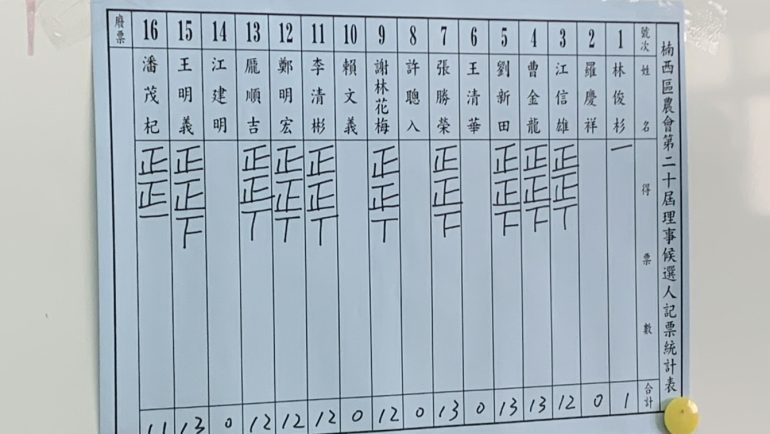 楠西區農會第二十屆理事候選人記票統計表
號次 姓名 得票數 合計
1 林俊杉 一 1
2 羅慶祥 0
3 江信雄 正正丅 12
4 曹金龍 正正下 13
5 劉新田 正正下 13
6 王清華 0
7 張勝榮 正正下 13
8 許聰入 0
9 謝林花梅 正正丅 12
10 賴文義 0
11 李清彬 正正丅 12
12 鄭明宏 正正丅 12
13 龎順吉 正正丅 12
14 江建明 0
15 王明義 正正下 13
16 潘茂杞 正正一 11
廢票